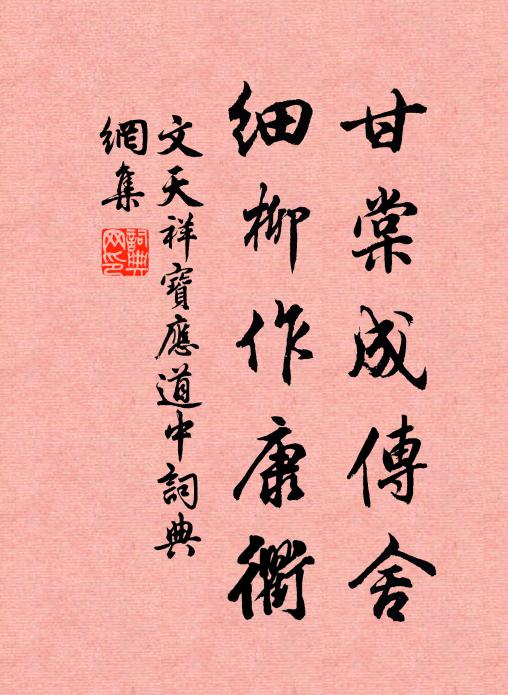 甘棠成傳舍
細柳作康衢
文天祥寶應道中詞典
網集
詞典網印